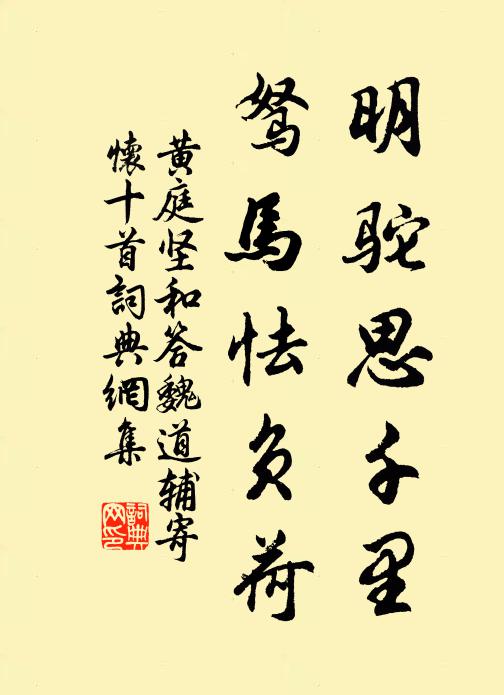 明驼思千里
驽馬怯负荷
黄庭坚和答魏道辅寄
懷十首詞典網集
詞典
网印